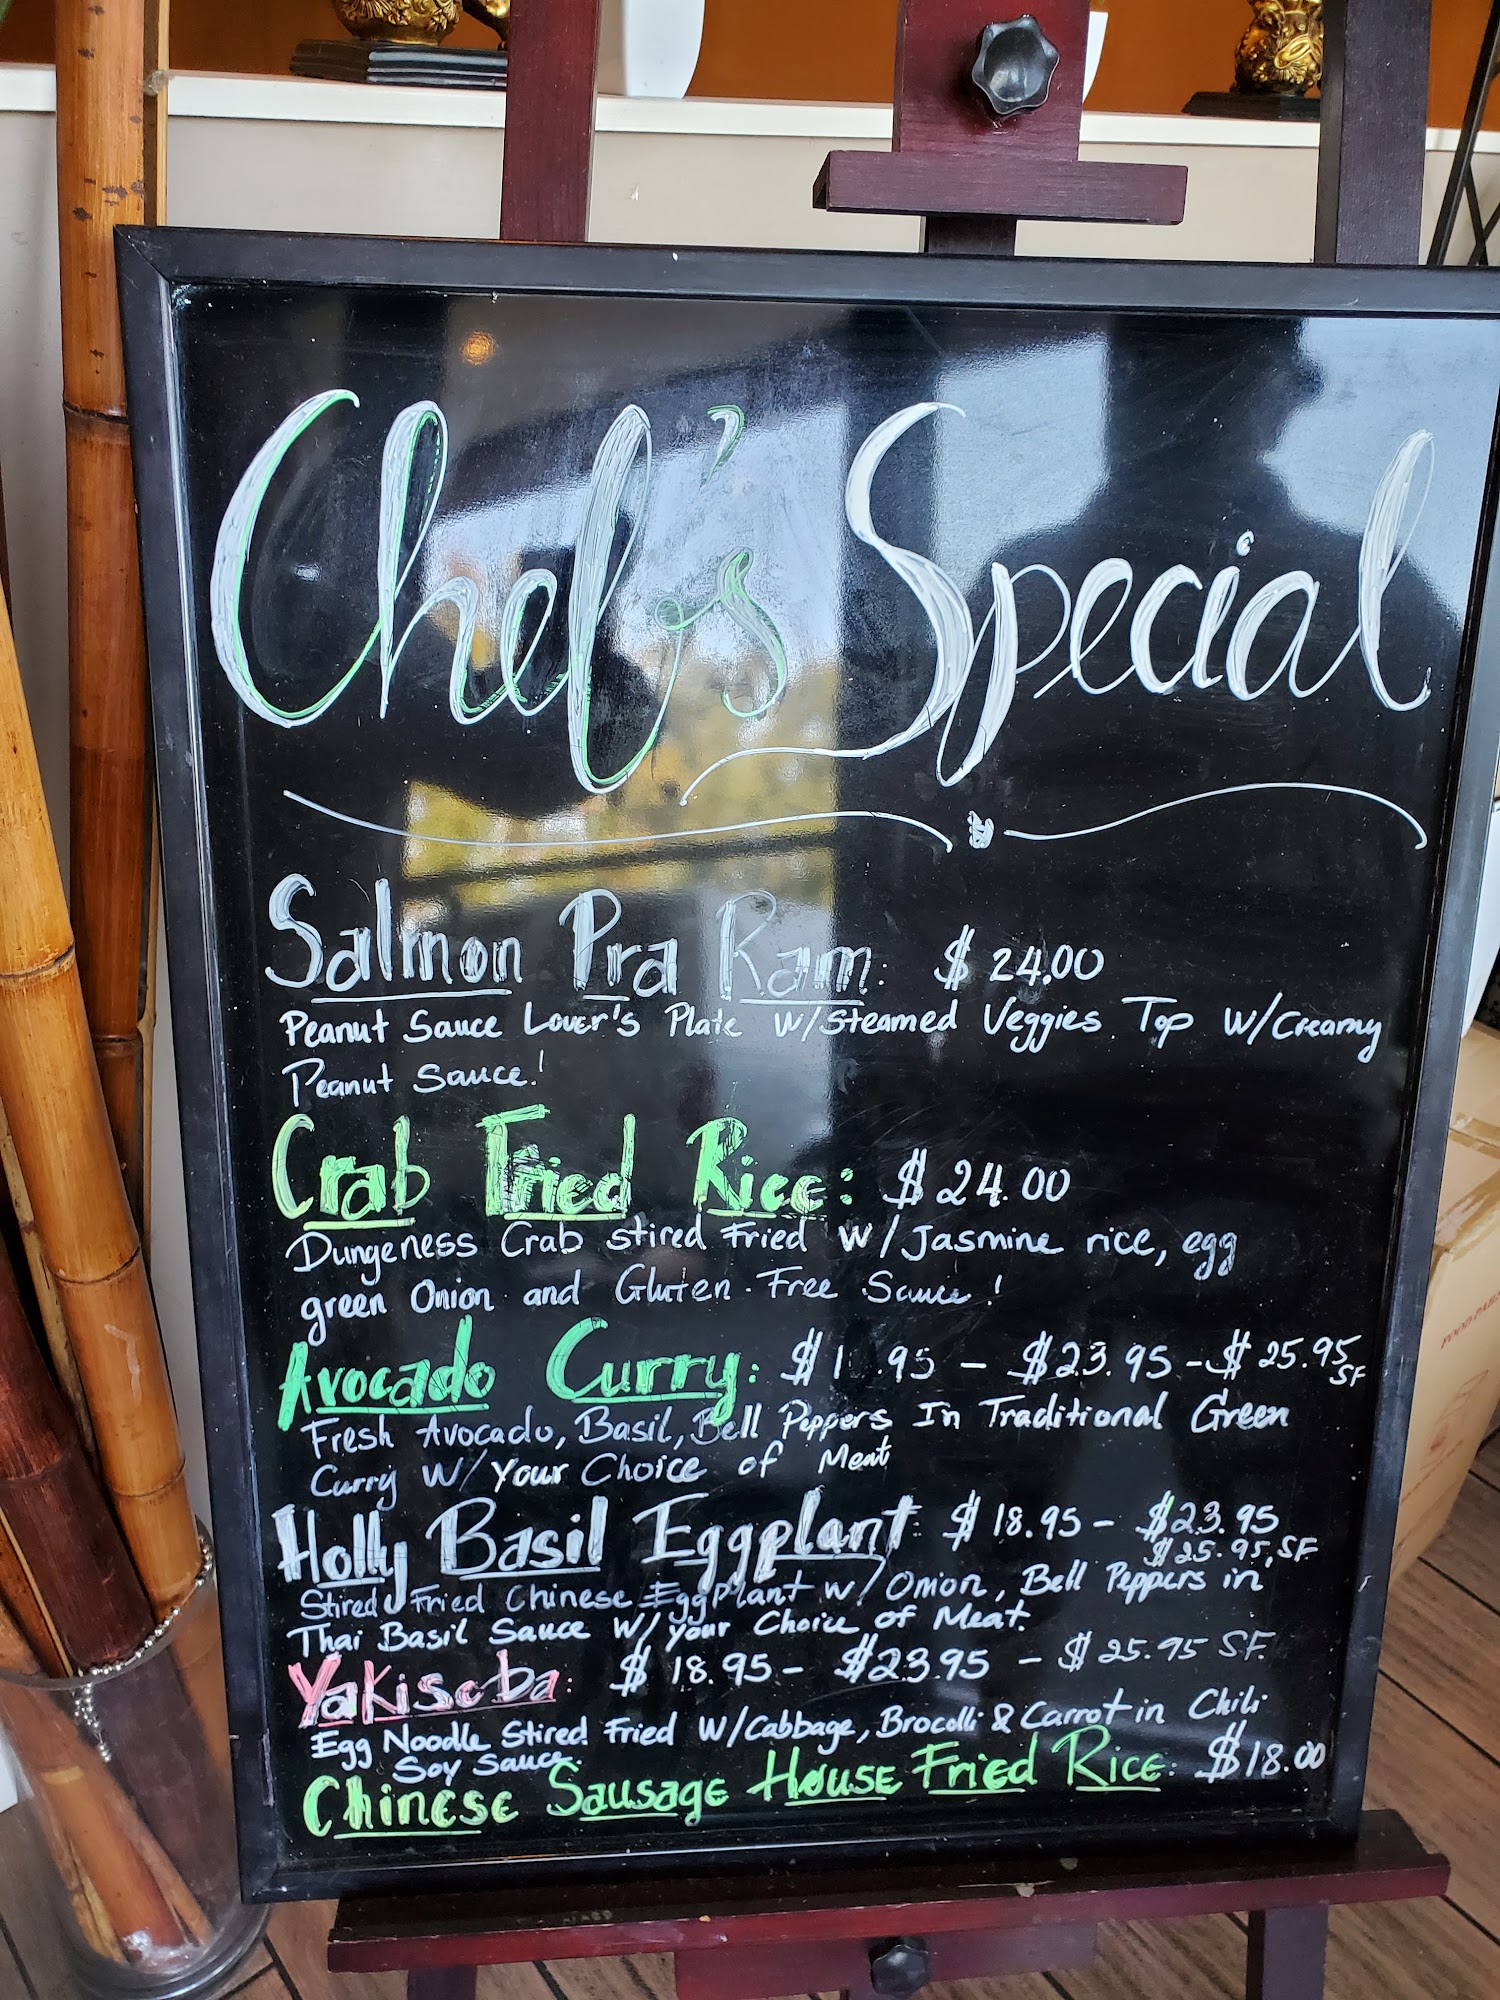 Chef's Special
Salmon Pra Ram: $24.00
Peanut Sauce Lover's Plate w/Steamed Veggies Top w/Creamy
Peanut Sauce!
Crab Fried Rice: $24.00
Dungeness Crab stired Fried w/Jasmine rice, egg
green Onion and Gluten Free Sauce!
Avocado Curry: $1 .95 - $23.95 - $25.95 SF
Fresh Avocado, Basil, Bell Peppers In Traditional Green
Curry w/Your Choice of Meat
Holly Basil Eggplant: $18.95 - $23.95
$25.95, SF
Stired Fried Chinese Eggplant w/ Onion, Bell Peppers in
Thai Basil Sauce w/your Choice of Meat.
Yakisoba: $18.95 - $23.95 - $25.95 SF.
Egg Noodle Stired Fried w/Cabbage, Brocolli & Carrot in Chili
Soy Sauce.
Chinese Sausage House Fried Rice: $18.00